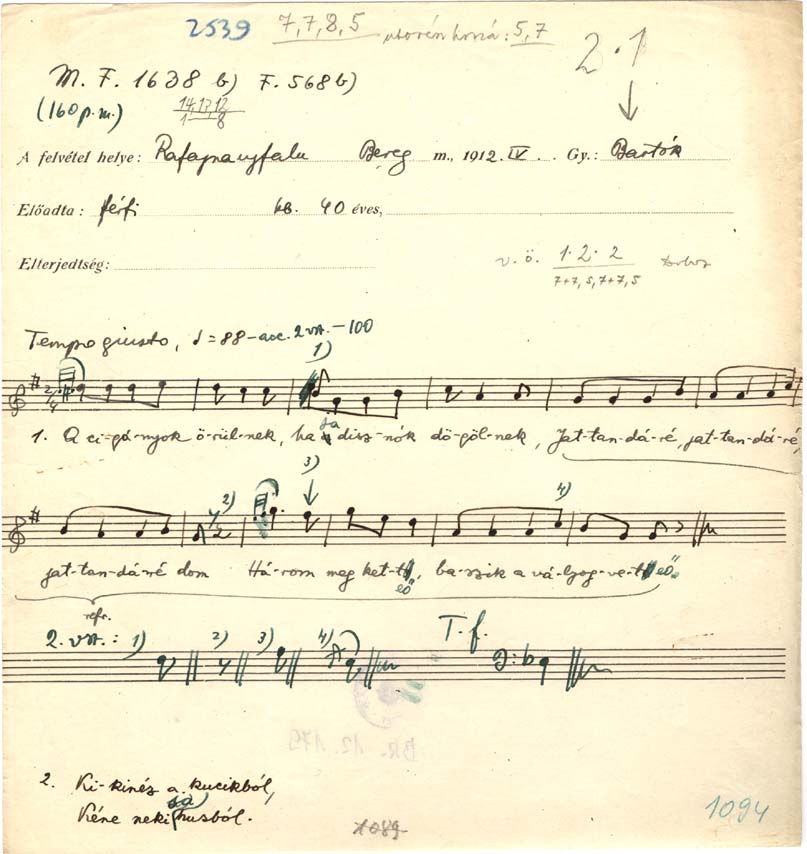 2539 7,7,8,5 utorén hozzá: 5,7
2·1
M. F. 1638 b) F. 568 b)
(160 p.m.) 14,17,12
1 8
A felvétel helye: Rafajnaujfalu Bereg m., 1912. IV. Gy.: Bartók
Előadta: férfi kb. 40 éves,
Elterjedtség:
v. ö. 1·2·2
7+7,5,7+7,5
Tempo giusto, ♩=88-acc. 2 vsz.-100
1)
2/4
1. A ci-gá-nyok ö-rül-nek, ha disz-nók dö-göl-nek, Jat-tan-dá-ré, jat-tan-dá-ré,
3)
2) 4)
jat-tan-dá-ré dom Há-rom meg ket-tő, ba-szik a vá-lyog-ve-tő
refr.
2. vsz.: 1) 2) 3) 4) T. f.
BR. 12.179
2. Ki-kinéz a kucikból,
Kéne neki husból.
sa
1089 1094